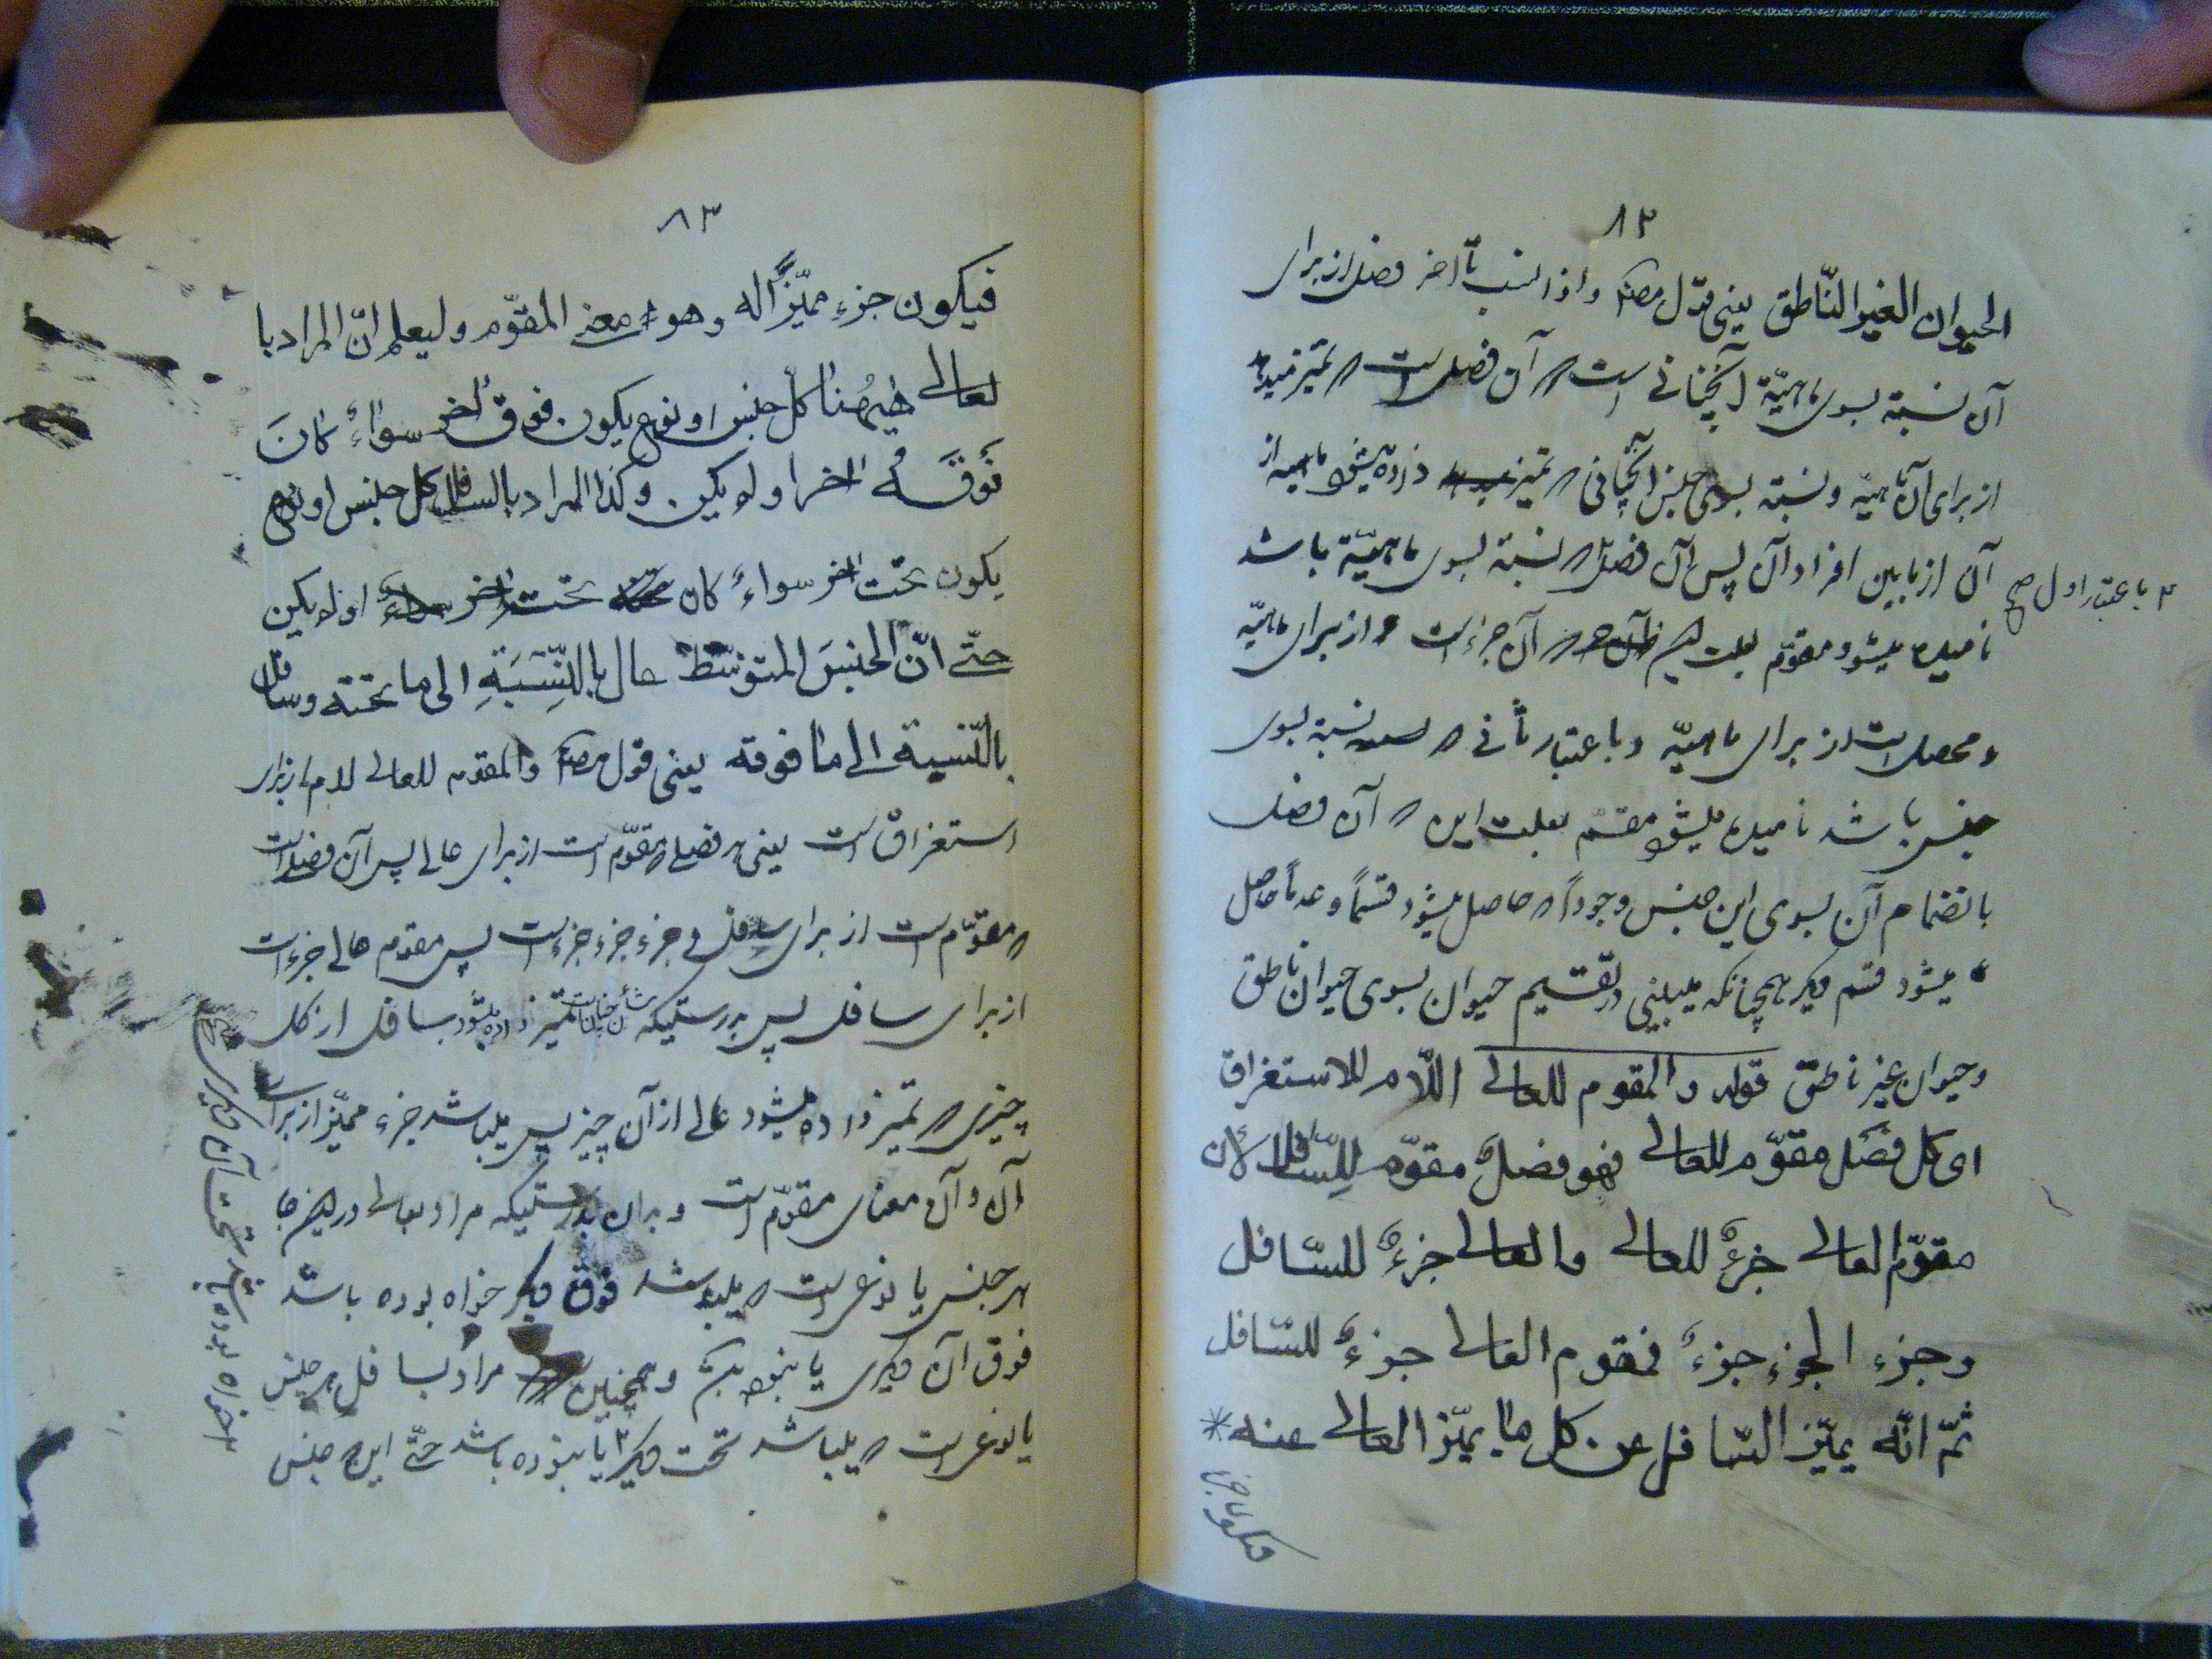 ٨٢
الحیوان الغیر الناطق یعنی قول مصنف واذا نسب تا آخر فصل از برای
آن نسبة بسوی ماهیّة آنچنانی است که آن فصل است که تمیز میدهد
از برای آن ماهیّه و نسبة بسوی جنس آنچنانی که تمیز داده میشود ماهیه از
آن از مابین افراد آن پس آن فصل که نسبة بسوی ماهیّة باشد
۲ باعتبار اول صح
نامیده میشود مقوّم بعلت این که آن جزء است از برای ماهیّه
و محصل است از برای ماهیّه و باعتبار ثانی که نسبة بسوی
جنس باشد نامیده میشود مقسّم بعلت این که آن فصل
بانضمام آن بسوی این جنس وجوداً که حاصل میشود قسماً و عدماً حاصل
میشود قسم دیگر همچنانکه میبینی در تقسیم حیوان بسوی حیوان ناطق
و حیوان غیر ناطق قوله والمقوم للعالی اللّام للاستغراق
ای کل فصل مقوّم للعالی فهو فصلٌ مقوّم للسّافل لأن
مقوّم العالی جزءٌ للعالی والعالی جزءٌ للسّافل
وجزء الجزء جزءٌ فمقوم العالی جزءٌ للسّافل
ثمّ انّه یمیّز السّافل عن کل ما یمیّز العالی عنه *
فیکون جزء
٨٣
فیکون جزء ممیّزاً له وهو معنی المقوّم ولیعلم انّ المراد با
لعالی هیهنا کل جنس او نوع یکون فوق اخر سواءٌ کان
فوقه اخر او لم یکن وکذا المراد بالسافل کل جنس او نوع
یکون تحت اخر سواءٌ کان تحته اخر او لم یکن
حتّی انّ الجنس المتوسّط عال بالنّسبة الی ما تحته وسافل
بالنّسبة الی ما فوقه یعنی قول مصنف والمقوم للعالی لام از برای
استغراق است یعنی هر فصلی که مقوّم است از برای عالی پس آن فصل است
که مقوّم است از برای سافل و جزء جزء جزء است پس مقوم عالی جزء است
از برای سافل پس بدرستیکه تمیز داده میشود سافل از کل
چیزی که تمیز داده میشود عالی از آن چیز پس میباشد جزء ممیّز از برای
آن و آن معنای مقوّم است و بدان بدرستیکه مراد بعالی در این جا
هر جنس یا نوعی است که میباشد فوق دیگر خواه بوده باشد
فوق آن دیگری یا نبوده باشد و همچنین مراد بسافل هر جنس
یا نوعی است که میباشد تحت دیگر ۲ یا نبوده باشد حتّی این که جنس
۲ خواه بوده باشد تحت آن دیگری صح